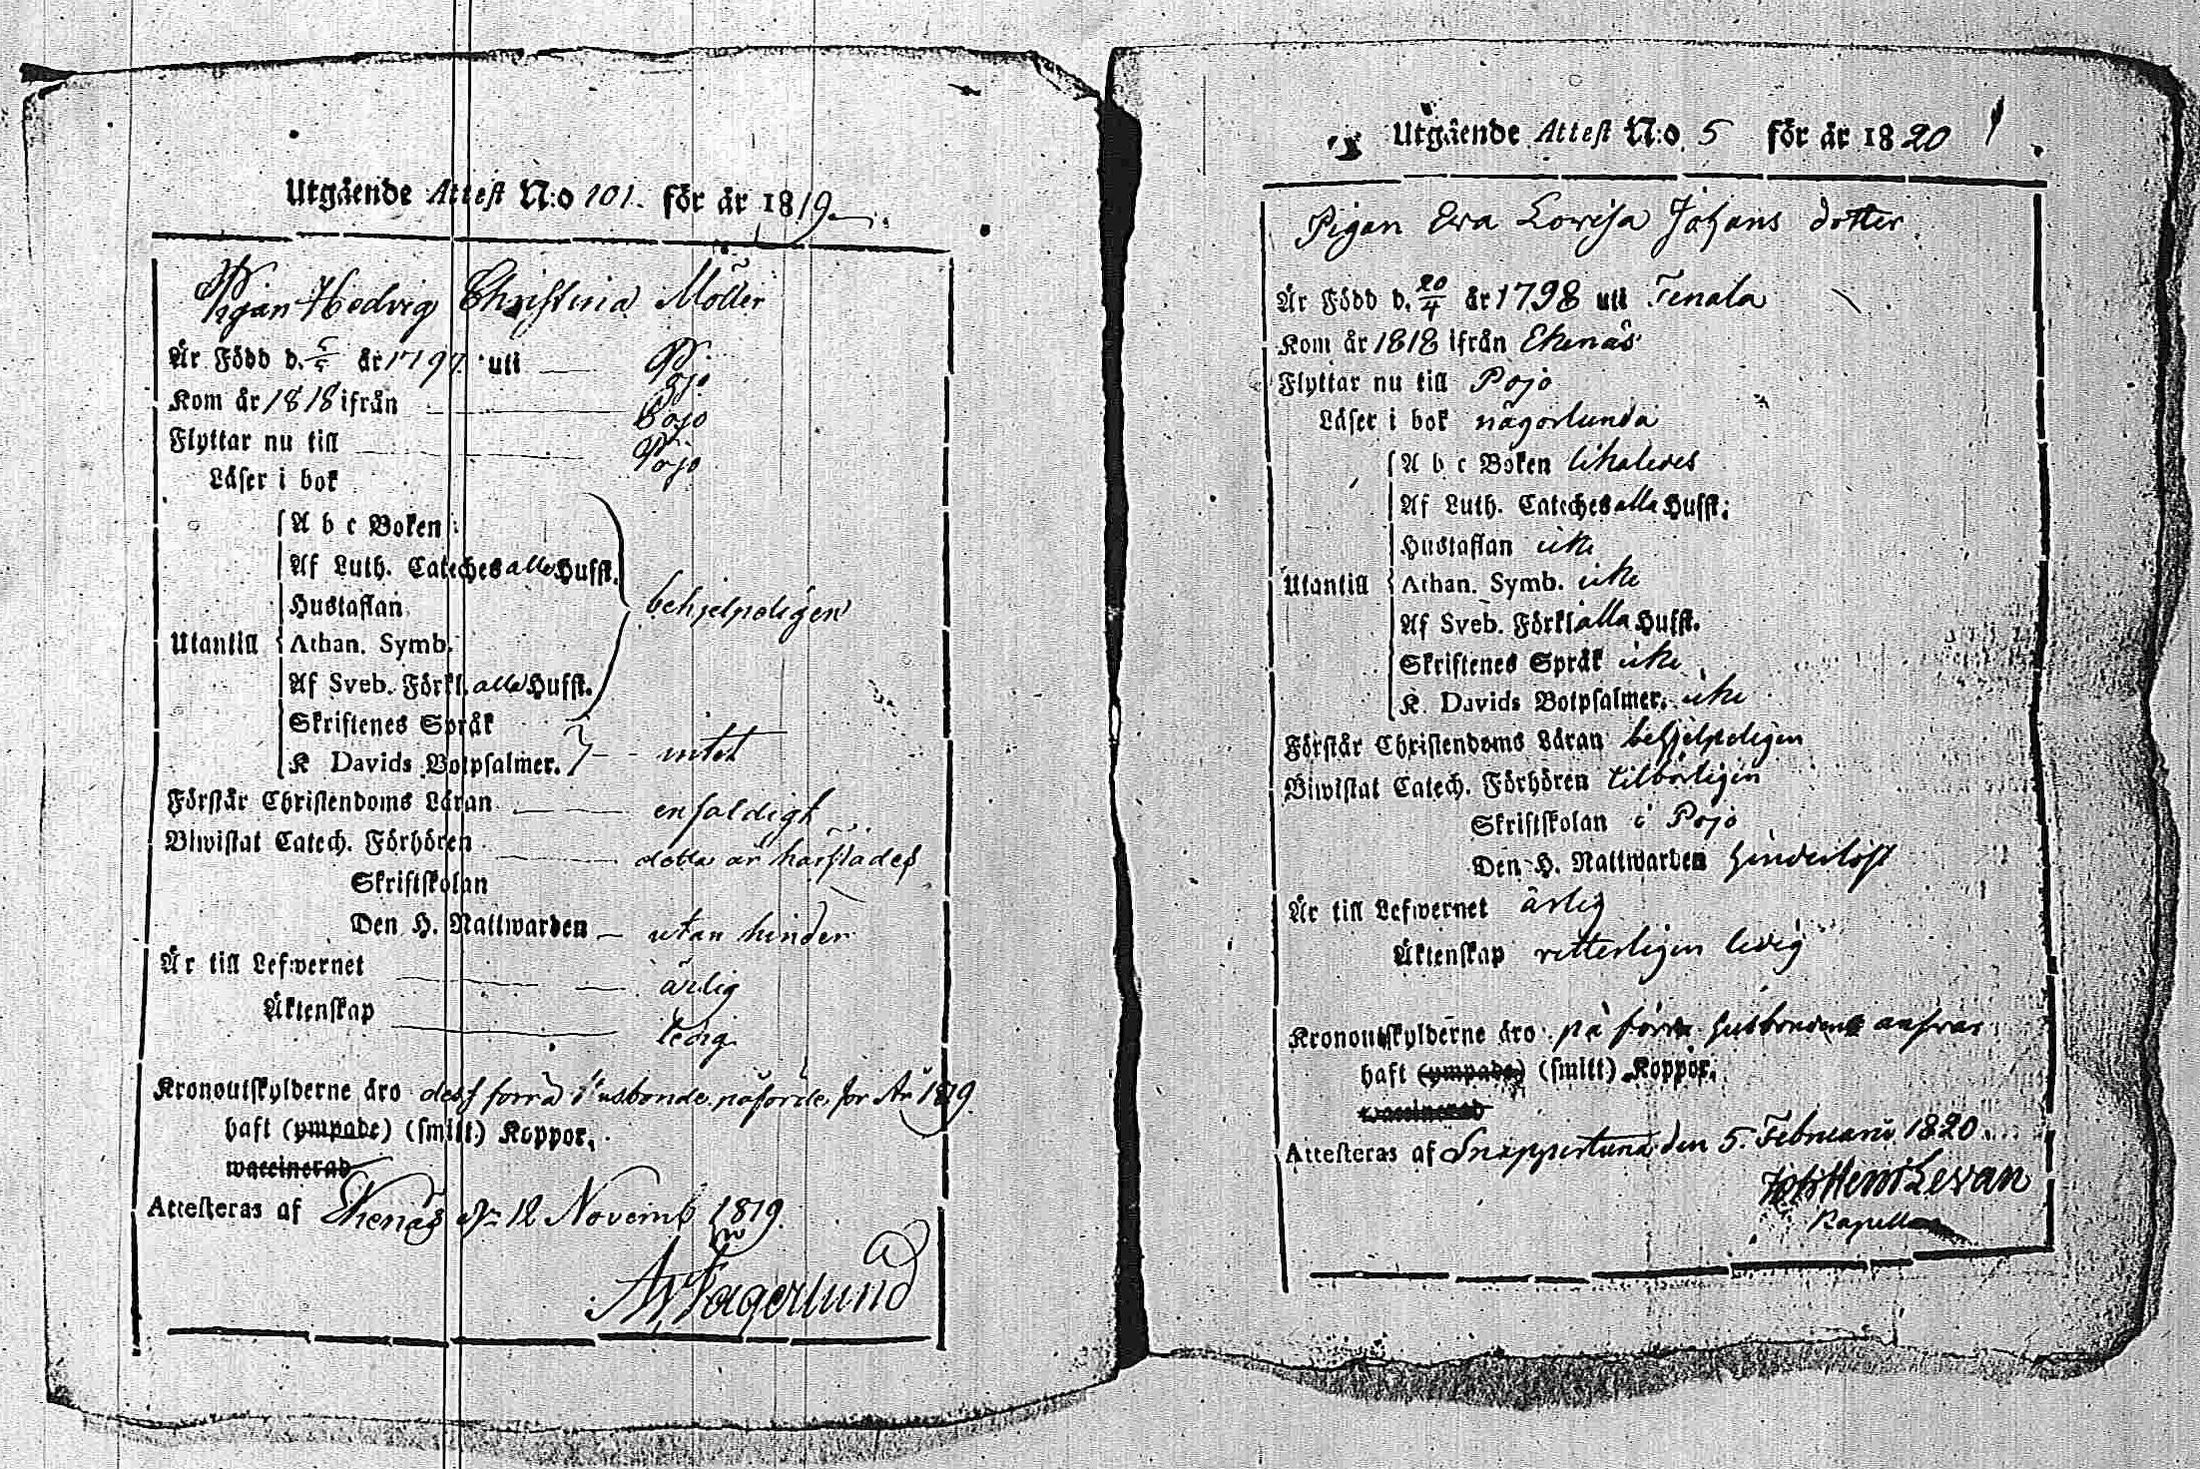 Utgående Attest N:o 101. för år 1819.
Pigan Hedvig Christina Möller
Är Född d. år 179 uti
Kom år 1818 ifrån Pojo
Flyttar nu till Pojo
Läser i bok
A b c Boken
Af Luth. Cateches alla Hufst.
Hustaflan
behjelpeligen
Utantill Athan. Symb.
Af Sveb. Förkl. alla Hufst.
Skriftenes Språk
K Davids Botpsalmer. intet
Förstår Christendoms Läran enfaldigt
Biwistat Catech. Förhören detta år härstädes
Skriftskolan
Den H. Nattwarden utan hinder
Är till Lefwernet ärlig
Äktenskap ledig
Kronoutskylderne äro dess förra Husbonde påförde för År 1819
haft (ympade) (smitt) Koppor.
waccinerad
Attesteras af Ekenäs d. 12 Novemb 1819.
Fagerlund
Utgående Attest N:o 5 för år 1820
Pigan Eva Lovisa Johans dotter.
Är Född d. 20/4 år 1798 uti Tenala
Kom år 1818 ifrån Ekenäs
Flyttar nu till Pojo
Läser i bok någorlunda
A b c Boken likaledes
Af Luth. Cateches alla Hufst:
Hustaflan icke
Utantill Athan. Symb. icke
Af Sveb. Förkl alla Hufst.
Skriftenes Språk icke
K. Davids Botpsalmer. icke
Förstår Christendoms Läran behjelpeligen
Biwistat Catech. Förhören tilbörligen
Skriftskolan i Pojo
Den H. Nattwarden hinderlöst
Är till Lefwernet ärlig
Äktenskap rätterligen ledig
Kronoutskylderne äro på förra husbondens ansvar
haft (ympade) (smitt) Koppor.
waccinerad
Attesteras af Snappertuna den 5. Februarii 1820.
Joh Henr Levan
Kapellan